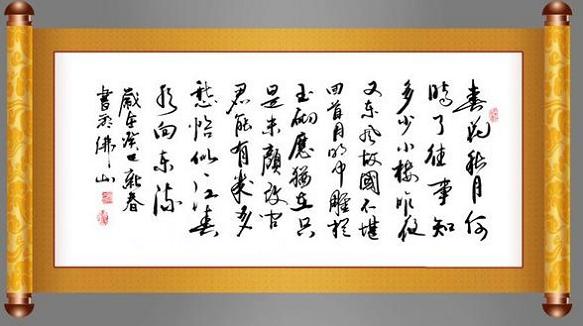 春花秋月何
時了往事知
多少小樓昨夜
又東風故國不堪
回首月明中雕欄
玉砌應猶在只
是朱顏改問
君能有幾多
愁恰似江春
水向東流
歲在癸巳新春
書於佛山